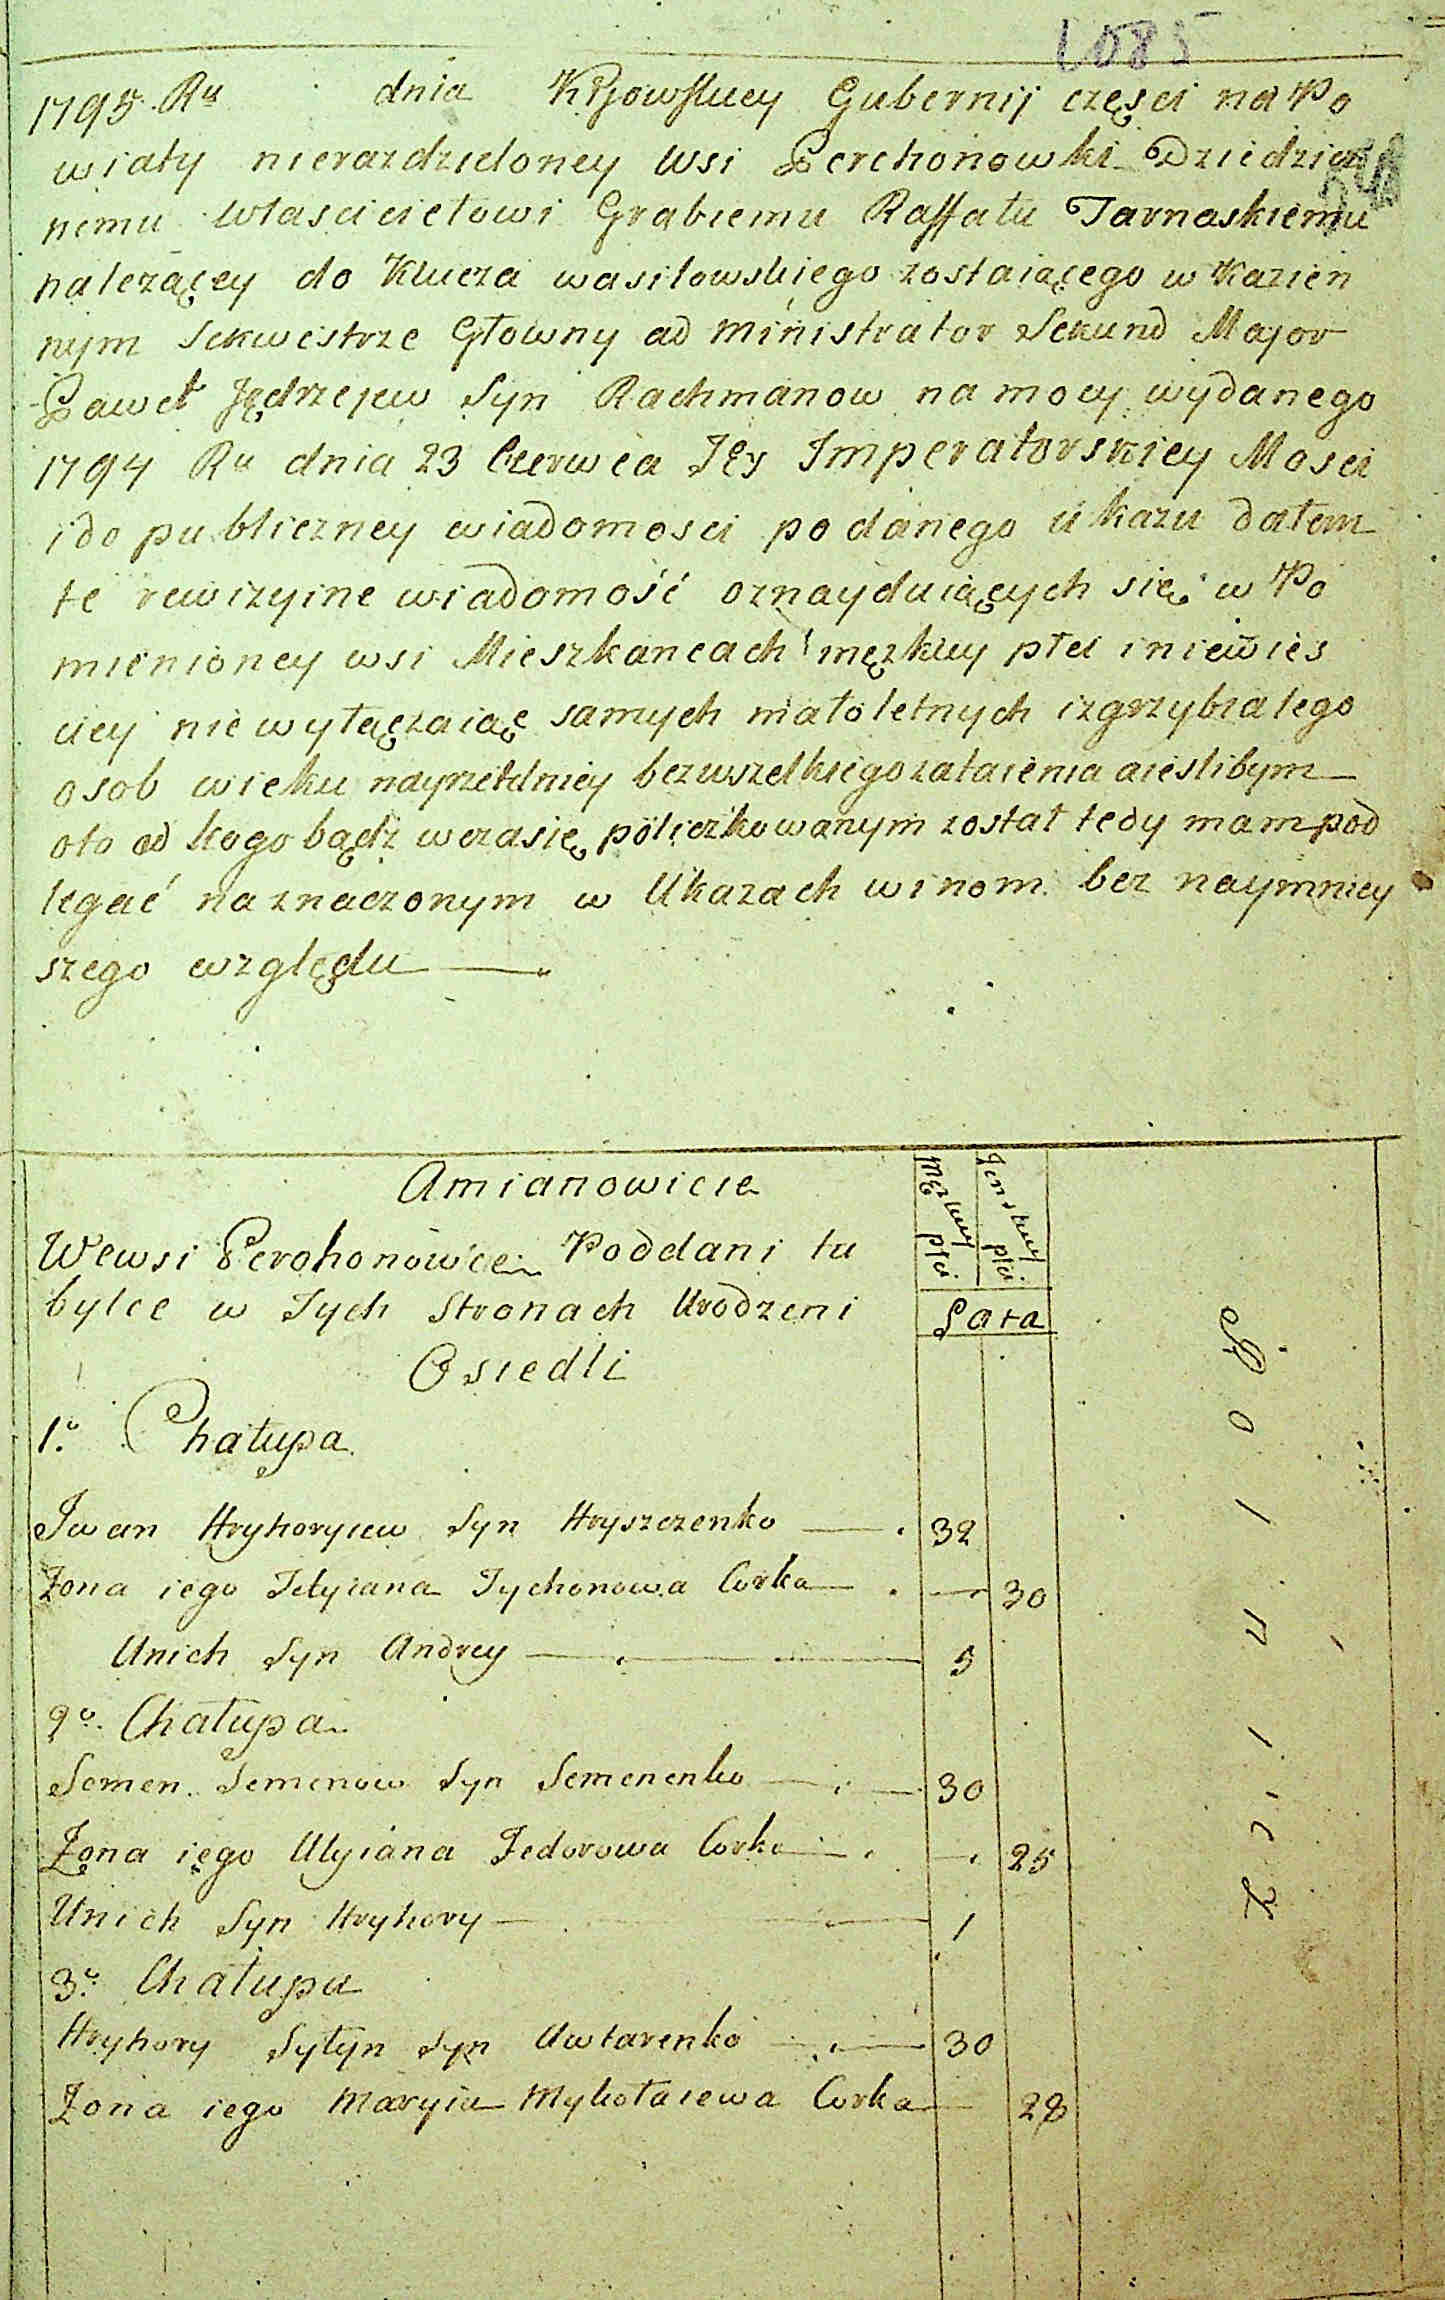 1085
1795 Ru dnia Kijowskiey Gubernij częsci na Po
wiaty nierazdzieloney Wsi Perchonowki Dziedzicz
nemu Włascicielowi Grabiemu Raffału Tarnaskiemu
należącey do Klucza wasilowskiego zostaiącego w Kazien
nym Sekwestrze Główny ad ministrator Sekund Major
Paweł Jędrzejew Syn Rachmanow na mocy wydanego
1794 Ru dnia 23 Czerwca Jey Imperatorskiey Mosci
i do publiczney wiadomosci podanego ukazu dałem
te rewizyine wiadomość oznayduiących się w Po
mienioney wsi Mieszkancach męzkiey płci i niewies
ciey nie wyłączaiąc samych małoletnych i zgrzybiałego
osob wieku nayrzetelniey bez wszelkiego zataienia a iesli bym
oto od kogo bądz w czasie policzkowanym został tedy mam pod
legać naznaczonym w Ukazach winom bez naymniey
szego względu
Amianowicie
Męzkiey płci
Żenskiey płci
We wsi Perohonowce Poddani tu
bylce w Tych Stronach Urodzeni
Lata
Osiedli
1o. Chałupa
Iwan Hryhoryiew Syn Hryszczenko 32
Żona iego Tetyiana Tychonowa Corka 30
Unich Syn Andrey 5
2o. Chałupa
Semen Semenow Syn Semenenko 30
Żona iego Ulyiana Fedorowa Corka 25
Unich Syn Hryhory 1
3o. Chałupa
Hryhory Syłyn Syn Awtarenko 30
Żona iego Maryia Mykołaiewa Corka 28